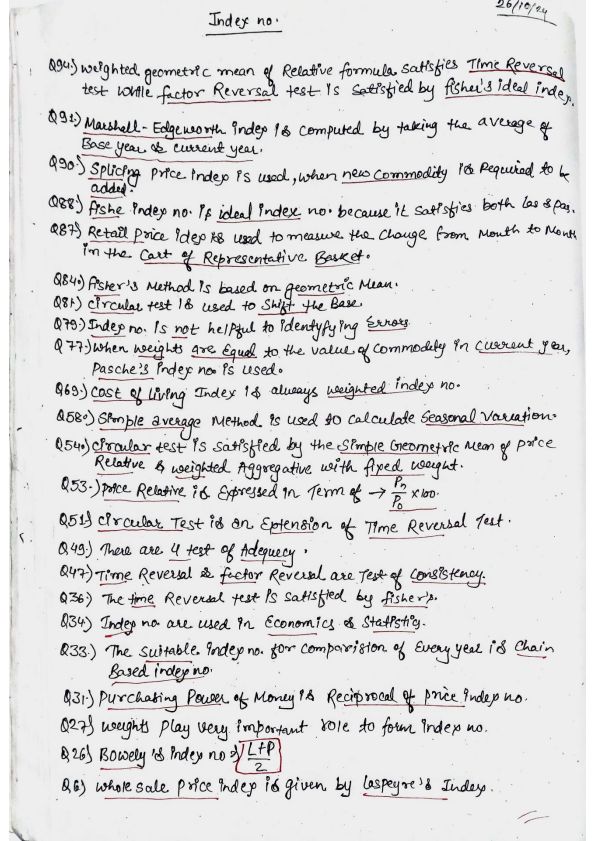 26/10/24
Index no.
Q94.) weighted geometric mean of Relative formula satisfies Time Reversal
test while factor Reversal test is satisfied by fisher's ideal index.
Q91.) Marshall-Edgeworth index is computed by taking the average of
Base year & current year.
Q90.) Splicing Price index is used, when new commodity is Required to be
added.
Q88.) fishe index no. is ideal index no. because it satisfies both las & pas.
Q87.) Retail price idex is used to measure the change from Month to Month
in the Cart of Representative Basket.
Q84.) fisher's Method is based on geometric Mean.
Q81.) circular test is used to Shift the Base.
Q79.) Index no. is not helpful to identifying Errors
Q77.) when weights are Equal to the value of commodity in current year,
Pasche's index no. is used.
Q69.) Cost of living Index is always weighted index no.
Q58.) Simple average Method is used to calculate seasonal variation.
Q54.) Circular test is satisfied by the simple Geometric Mean of price
Relative & weighted Aggregative with fixed weight.
Q53.) Price Relative is Expressed in Term of → Pn/P0 × 100.
Q51.) Circular Test is an Extension of Time Reversal Test.
Q49.) There are 4 test of Adequecy.
Q47.) Time Reversal & factor Reversal are Test of Consistency.
Q36.) The time Reversal test is satisfied by fisher's.
Q34.) Index no are used in Economics & Statistics.
Q33.) The suitable index no. for comparision of Every year is Chain
Based index no.
Q31.) Purchasing Power of Money is Reciprocal of price index no.
Q27.) weights Play very important role to form index no.
Q26.) Bowely's index no ⇒ L+P/2
Q6.) whole sale Price index is given by Laspeyre's Index.